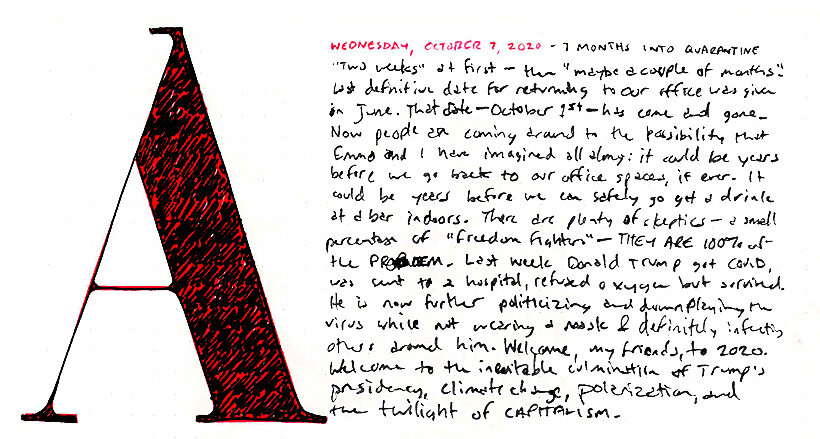 A
WEDNESDAY, OCTOBER 7, 2020 - 7 MONTHS INTO QUARANTINE
"Two weeks" at first - then "maybe a couple of months".
Last definitive date for returning to our office was given
in June. That date - October 1st - has come and gone.
Now people are coming around to the possibility that
Emma and I have imagined all along: it could be years
before we go back to our office spaces, if ever. It
could be years before we can safely go get a drink
at a bar indoors. There are plenty of skeptics - a small
percentage of "freedom fighters" - THEY ARE 100% of
the PROBLEM. Last week Donald Trump got COVID,
was sent to a hospital, refused oxygen but survived.
He is now further politicizing and downplaying the
virus while not wearing a mask & definitely infecting
others around him. Welcome, my friends, to 2020.
Welcome to the inevitable culmination of Trump's
presidency, climate change, polarization, and
the twilight of CAPITALISM.